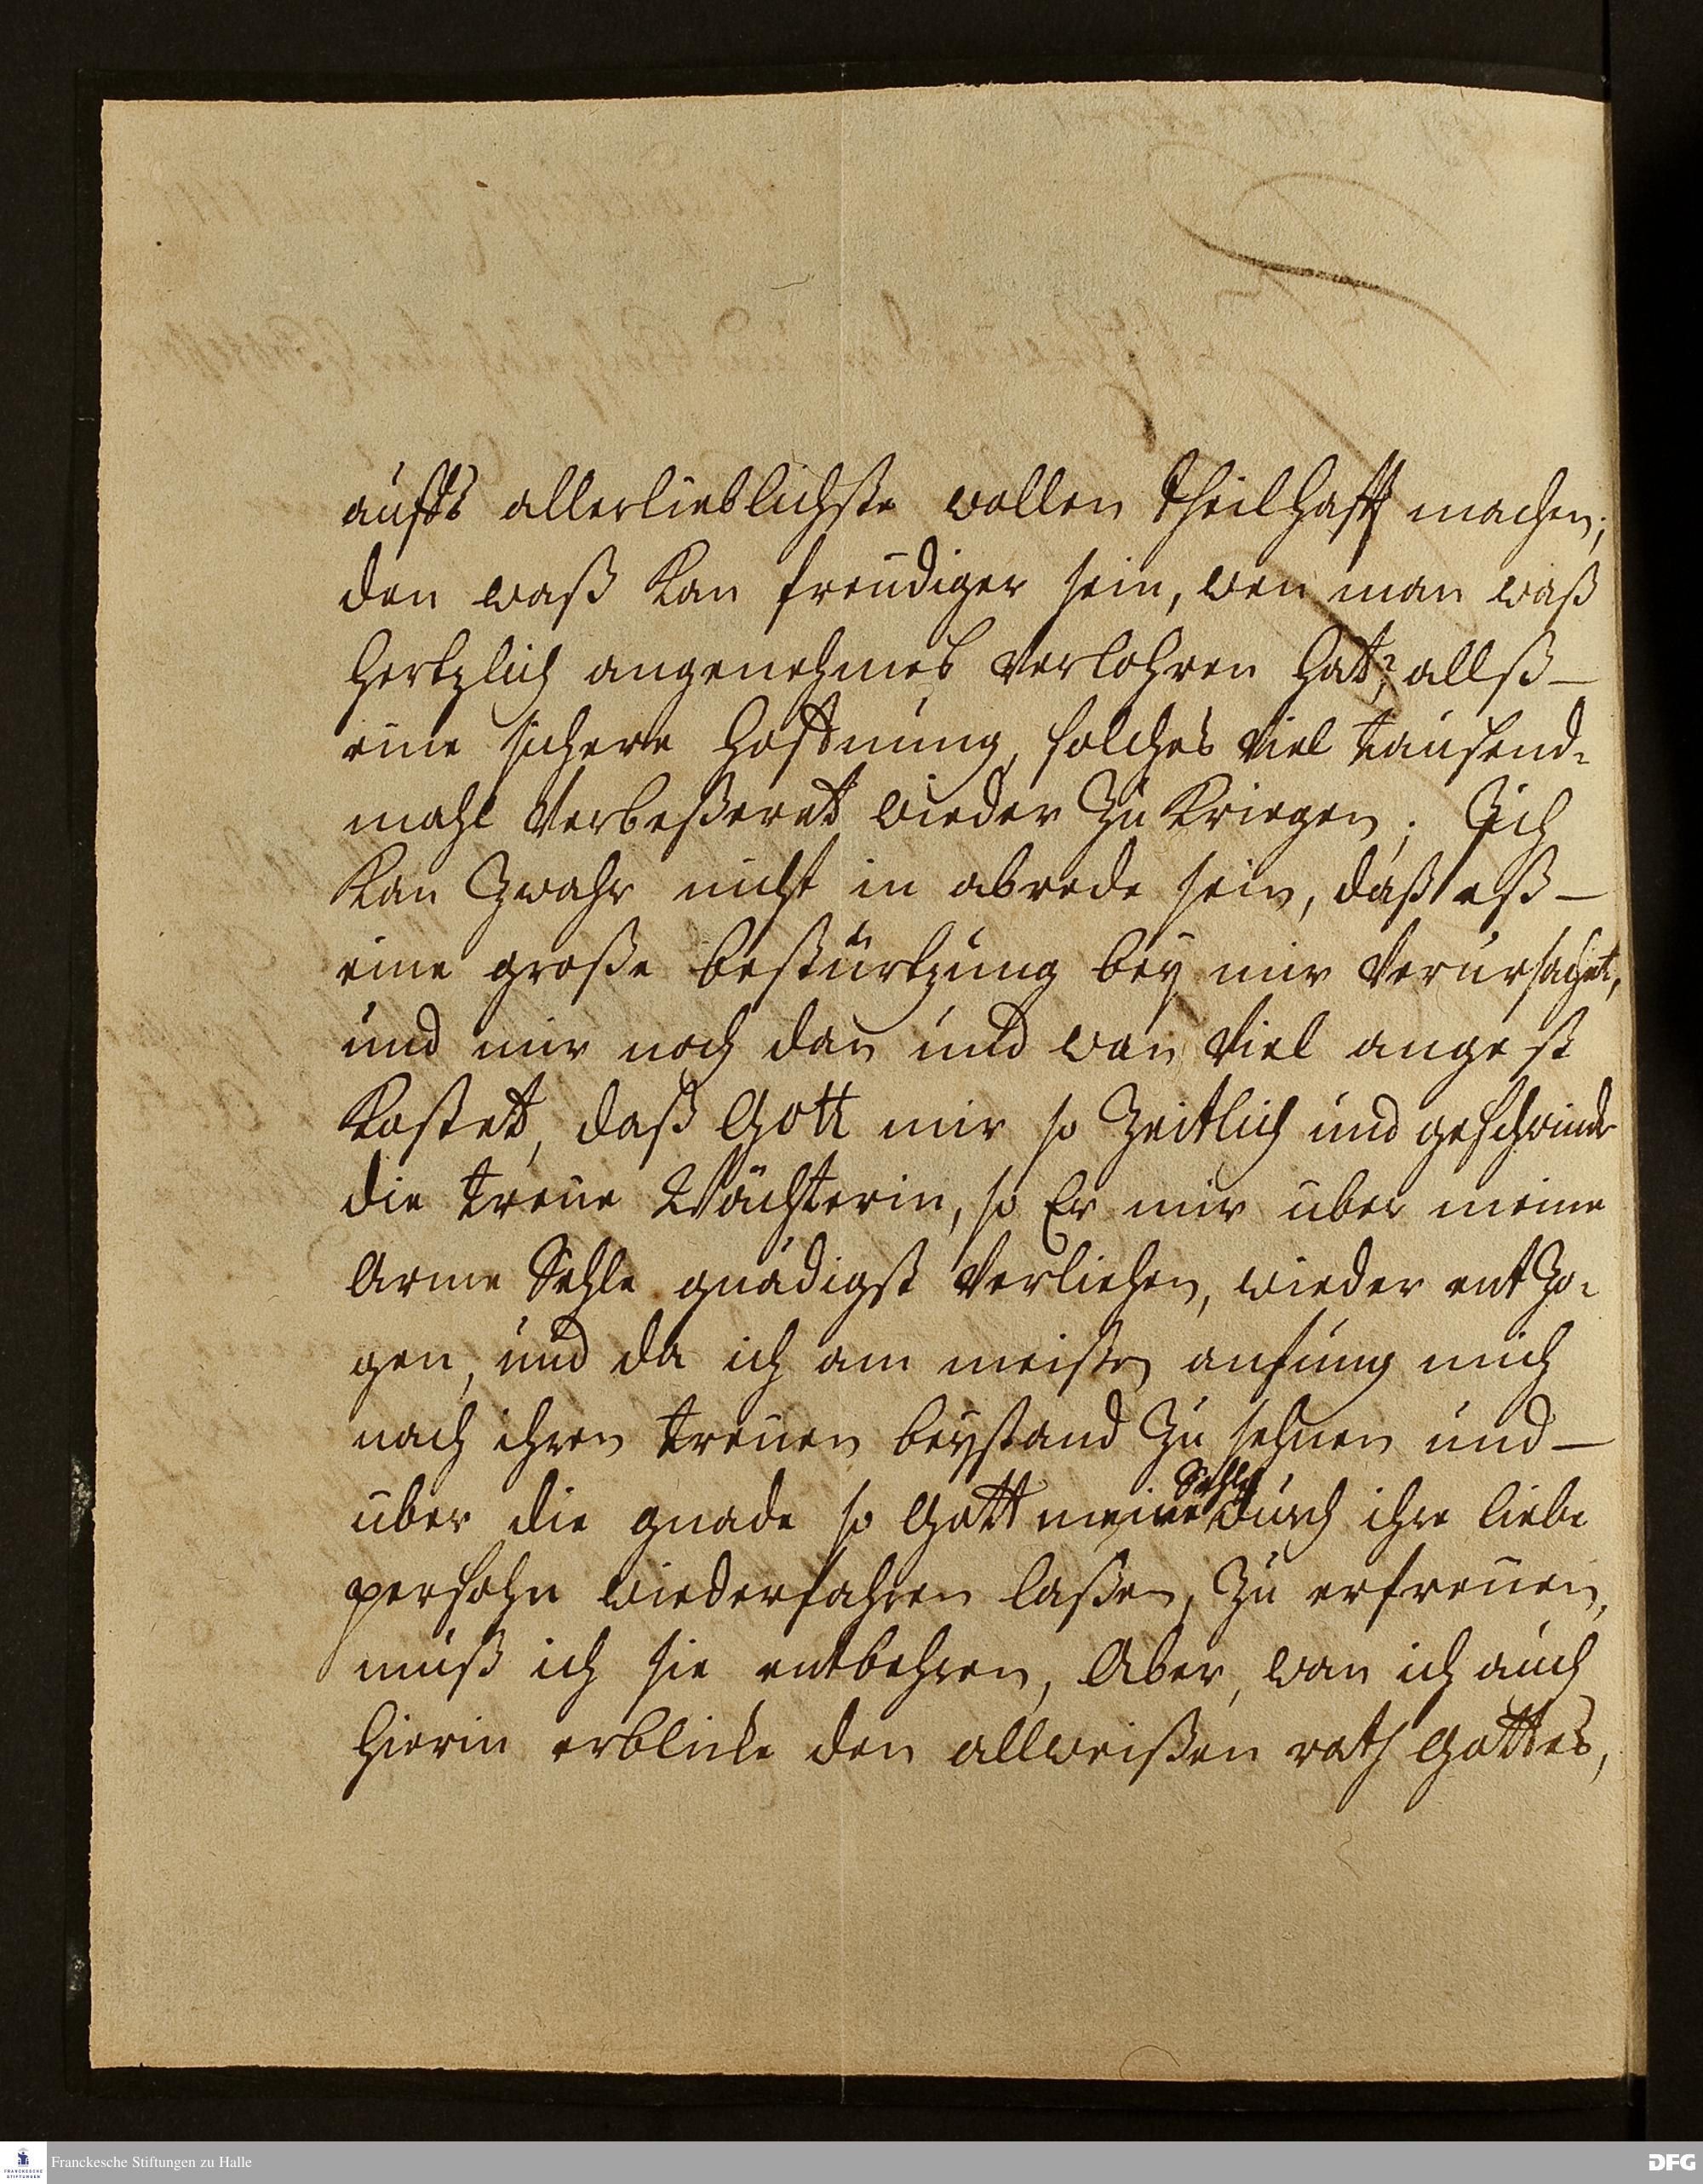 auffs allerlieblichste wollen theilhafft machen,
den waß kan freudiger sein, wen man waß
hertzlich angenehmes verlohren hat, allß
eine sichere hoffnung, solches viel tausend-
mahl verbeßeret wieder zu kriegen; Ich
kan zwahr nicht in abrede sein, daß eß
eine große bestürtzung bey mir verursachet,
und mir noch dan und wan viel angest
kostet, daß Gott mir so zeitlich und geschwinde
die treue Wächterin, so Er mir über meine
Arme Sehle gnädigst verliehen, wieder entzo-
gen, und da ich am meisten anfung mich
nach ihren treuen beystand zu sehnen und
über die gnade so Gott meine Sehle durch ihre liebe
persohn wiederfahren laßen, zu erfreuen,
muß ich sie entbehren, Aber, wan ich auch
hierin erblicke den allweißen rath Gottes,
Franckesche Stiftungen zu Halle
DFG